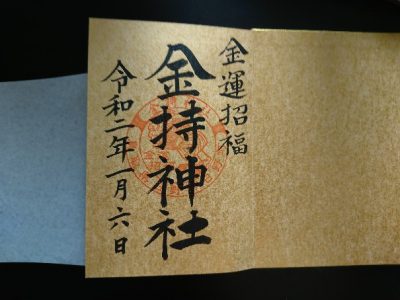 金運招福
金持神社
令和二年一月六日